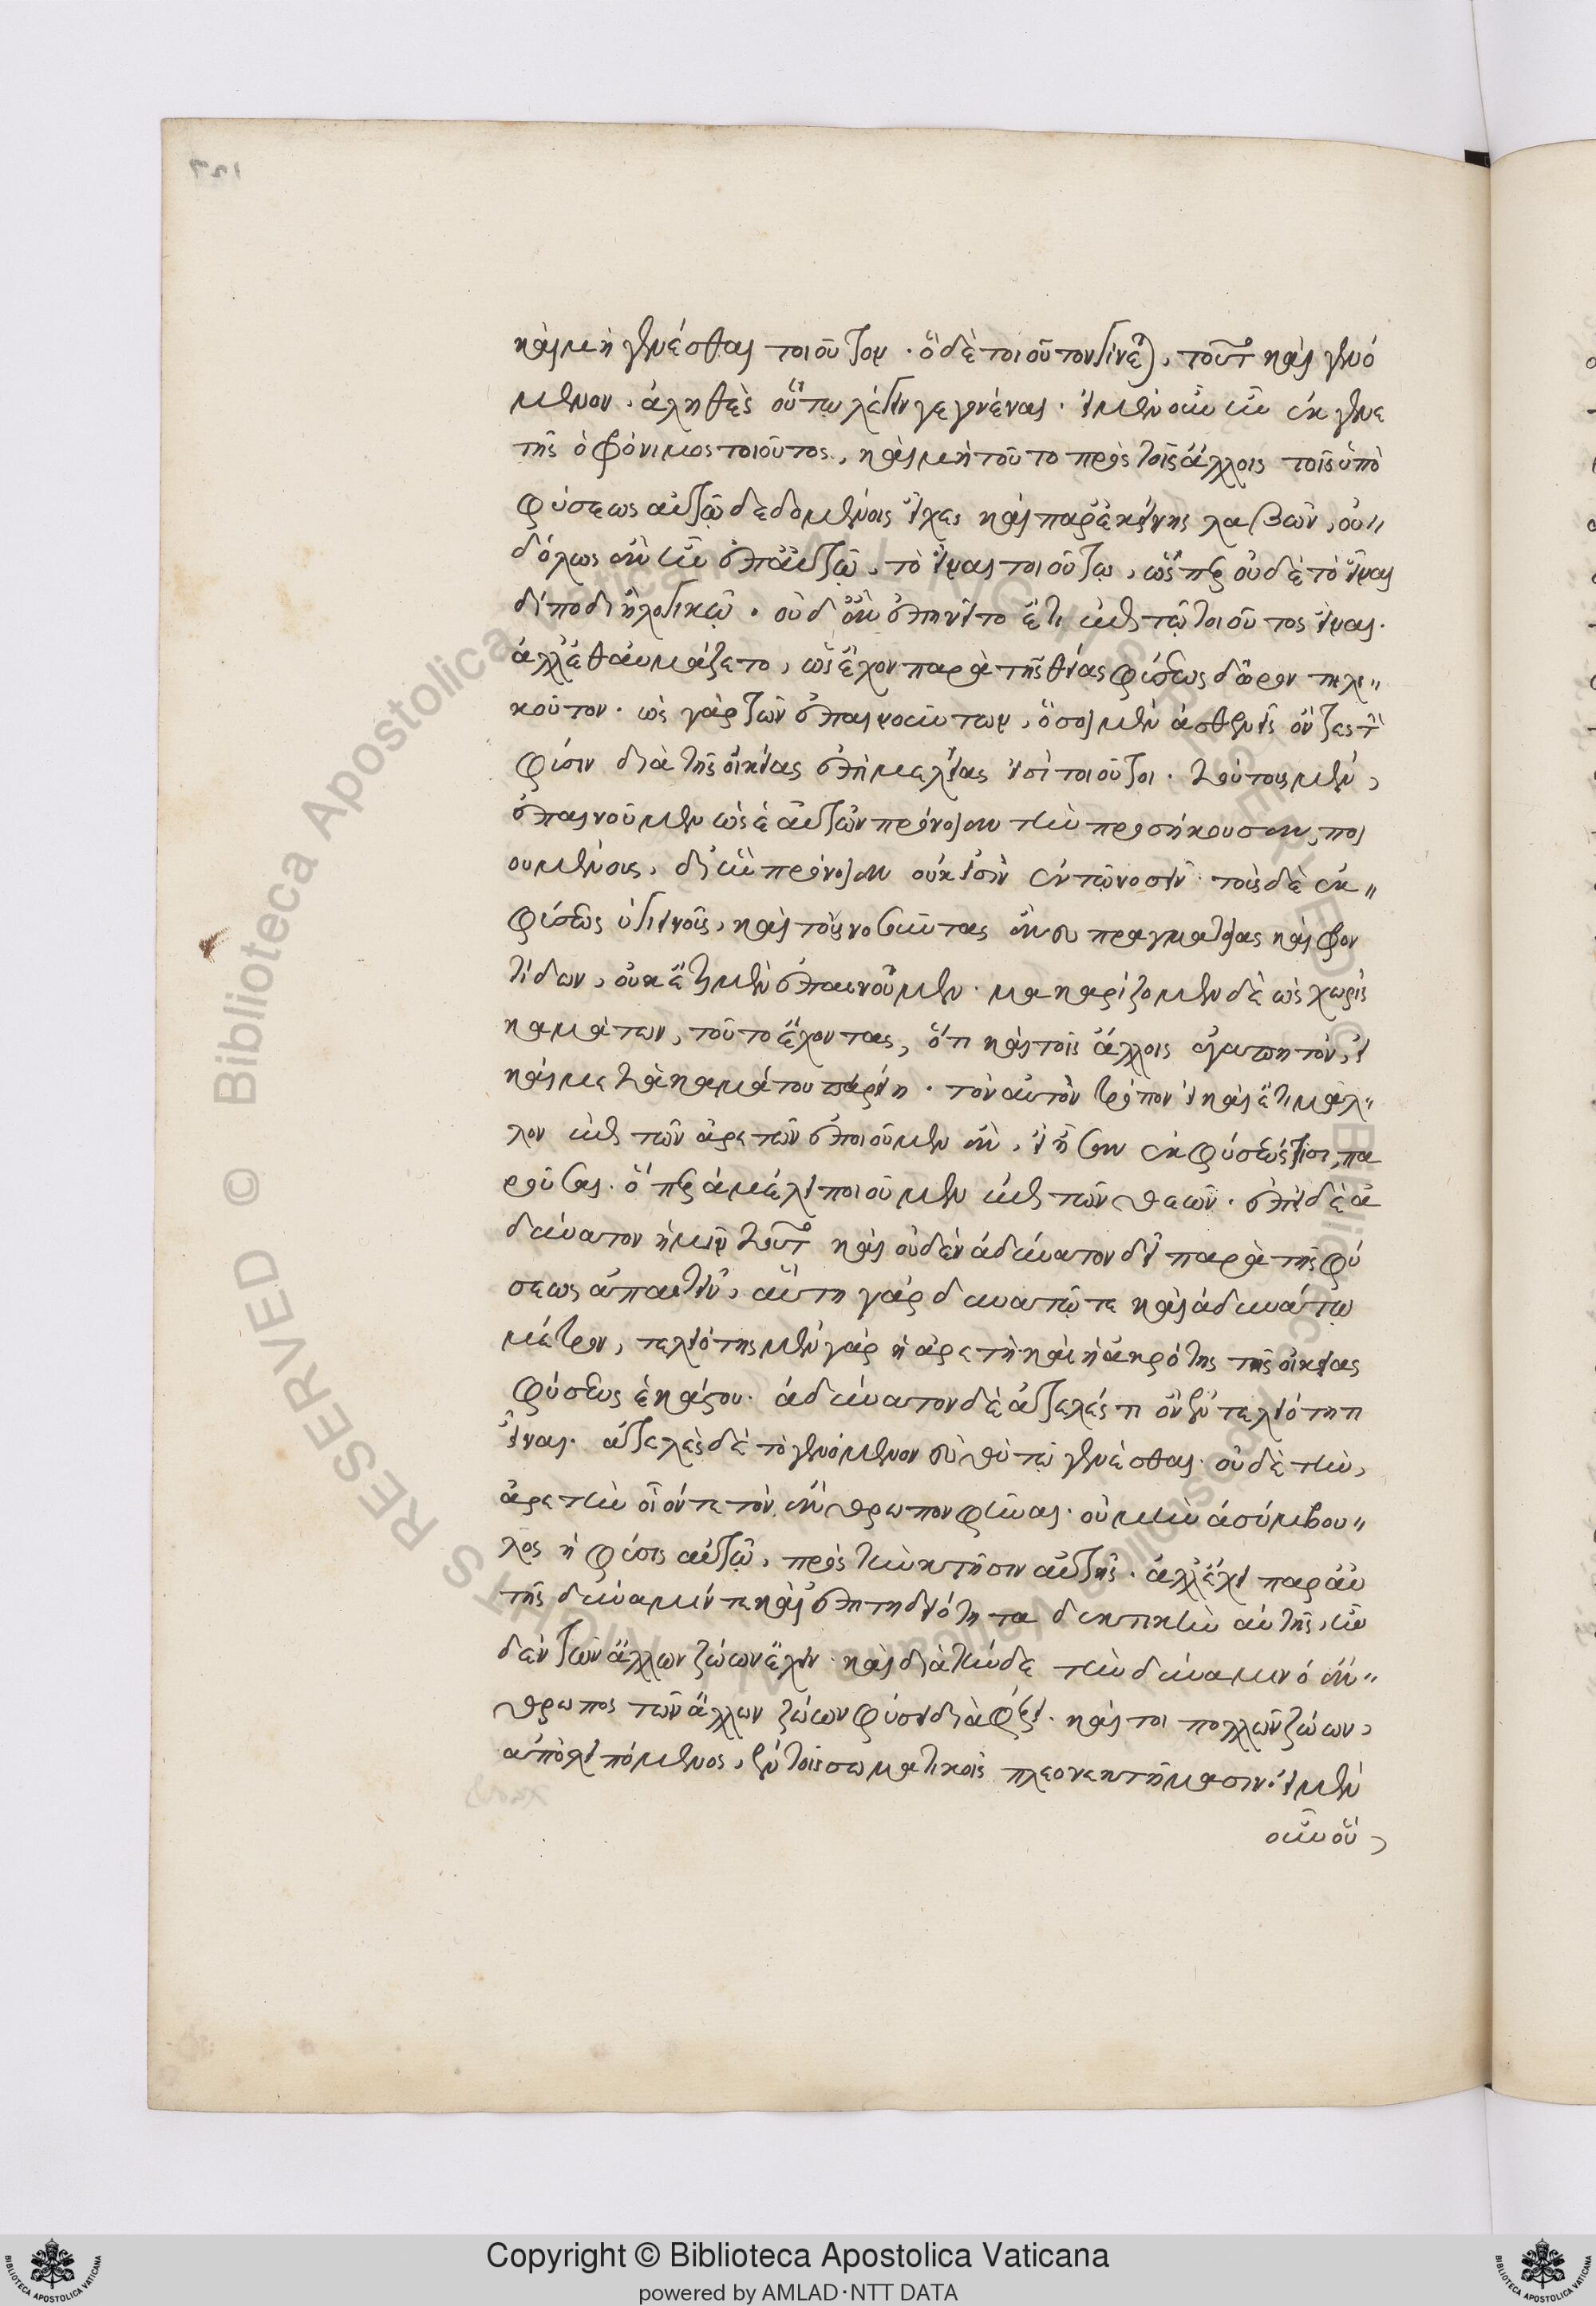 καὶ μὴ γενέσθαι τοιοῦτον. ὃ δὲ τοιοῦτον γίνεται, τοῦτο καὶ γενό
μενον, ἀληθὲς οὕτω λέγειν γεγονέναι. εἰ μὲν οὖν ἦν ἐκ γενε
τῆς ὁ φρόνιμος τοιοῦτος, καὶ μὴ τοῦτο πρὸς τοῖς ἄλλοις τοῖς ὑπὸ
φύσεως αὐτῷ δεδομένοις εἶχε καὶ παρ' ἐκείνης λαβών, οὐ〃
δ' ὅλως ἂν ἦν ἐπ' αὐτῷ, τὸ εἶναι τοιούτῳ, ὥσπερ οὐδὲ τὸ εἶναι
δίποδι ἢ λογικῷ. οὐδ' ἂν ἐπῃνεῖτο ἔτι ἐπὶ τῷ τοιοῦτος εἶναι.
ἀλλ' ἐθαυμάζετο, ὡς ἔχον παρὰ τῆς θείας φύσεως δῶρον τηλι〃
κοῦτον. ὡς γὰρ τῶν ὑγιαινόντων, ὅσοι μὲν ἀσθενεῖς ὄντες τὴν
φύσιν διὰ τῆς οἰκείας ἐπιμελείας εἰσὶ τοιοῦτοι. τούτους μὲν,
ἐπαινοῦμεν ὡς ἑαυτῶν πρόνοιαν τὴν προσήκουσαν ποι
ουμένους, δι' ἣν πρόνοιαν οὐκ εἰσὶν ἐν τῷ νοσεῖν. τοὺς δὲ ἐκ〃
φύσεως ὑγιεινοὺς, καὶ τοὺς νοσοῦντας ἄνευ πραγματείας καὶ φρον
τίδων, οὐκέτι μὲν ἐπαινοῦμεν. μακαρίζομεν δὲ ὡς χωρὶς
καμάτων, τοῦτο ἔχοντας, ὅτι καὶ τοῖς ἄλλοις ἀγαπητὸν, εἰ
καὶ μετὰ καμάτου παρείη. τὸν αὐτὸν τρόπον εἰ καὶ ἔτι μᾶλ〃
λον ἐπὶ τῶν ἀρετῶν ἐποιοῦμεν ἂν, εἰ ἦσαν ἐκ φύσεώς τισι πα
ροῦσαι. ὅπερ ἀμέλει ποιοῦμεν ἐπὶ τῶν θεῶν. ἐπεὶ δὲ ἀ
δύνατον ἡμῖν τοῦτο καὶ οὐδὲν ἀδύνατον δεῖ παρὰ τῆς φύ
σεως ἀπαιτεῖν, αὕτη γὰρ δυνατῷ τε καὶ ἀδυνάτῳ
μέτρον, τελειότης μὲν γὰρ ἡ ἀρετὴ καὶ ἡ ἀκρότης τῆς οἰκείας
φύσεως ἑκάστου. ἀδύνατον δὲ ἀτελές τι ὂν ἐν τελειότητι
εἶναι. ἀτελὲς δὲ τὸ γενόμενον εὐθὺ τῷ γενέσθαι. οὐδὲ τὴν,
ἀρετὴν οἷόν τε τὸν ἄνθρωπον φῦναι. οὐ μὴν ἀσύμβου〃
λος ἡ φύσις αὐτῷ, πρὸς τὴν κτῆσιν αὐτῆς. ἀλλ' ἔχει παρ' αὐ
τῆς δύναμίν τε καὶ ἐπιτηδειότητα δεκτικὴν αὐτῆς, ἣν οὐ
δὲν τῶν ἄλλων ζώων ἔχει. καὶ διὰ τήνδε τὴν δύναμιν ὁ ἄν〃
θρωπος τῶν ἄλλων ζώων φύσει διαφέρει. καίτοι πολλῶν ζώων,
ἀπολειπόμενος, ἐν τοῖς σωματικοῖς πλεονεκτήμασιν. εἰ μὲν
οὖν οὕ,
Copyright © Biblioteca Apostolica Vaticana
powered by AMLAD·NTT DATA